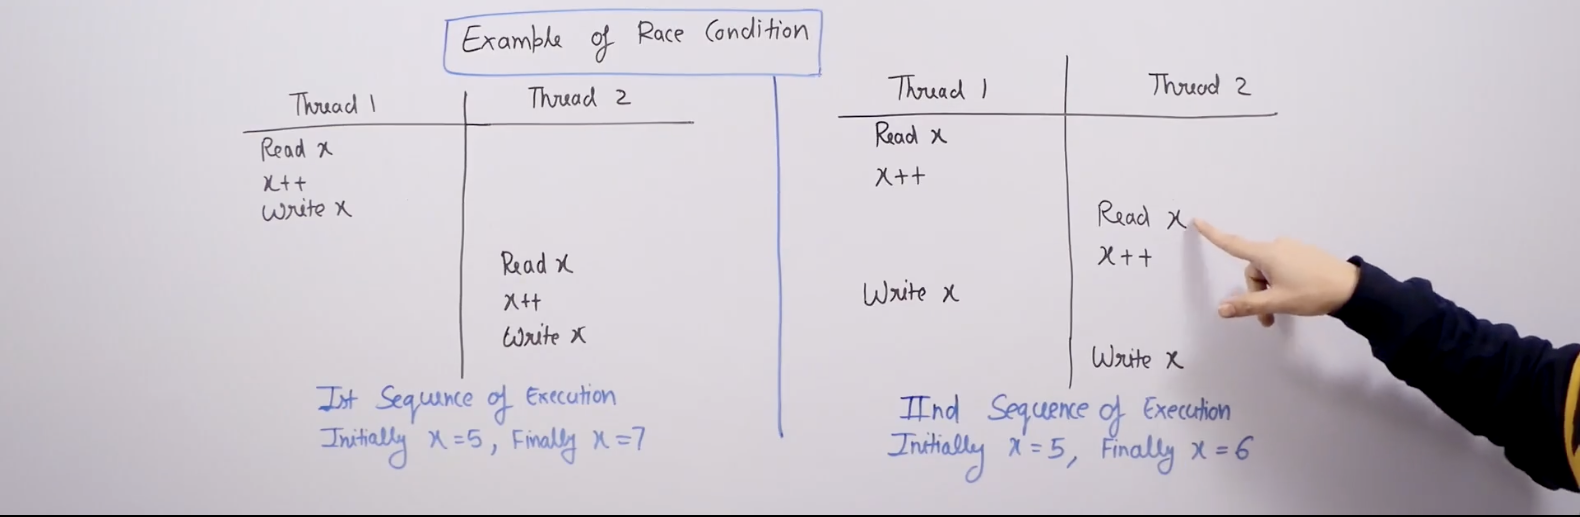 Example of Race Condition
Thread 1
Thread 2
Read x
x++
Write x
Read x
x++
Write x
Ist Sequence of Execution
Initially x=5, Finally x=7
Thread 1
Thread 2
Read x
x++
Read x
x++
Write x
Write x
IInd Sequence of Execution
Initially x=5, Finally x=6